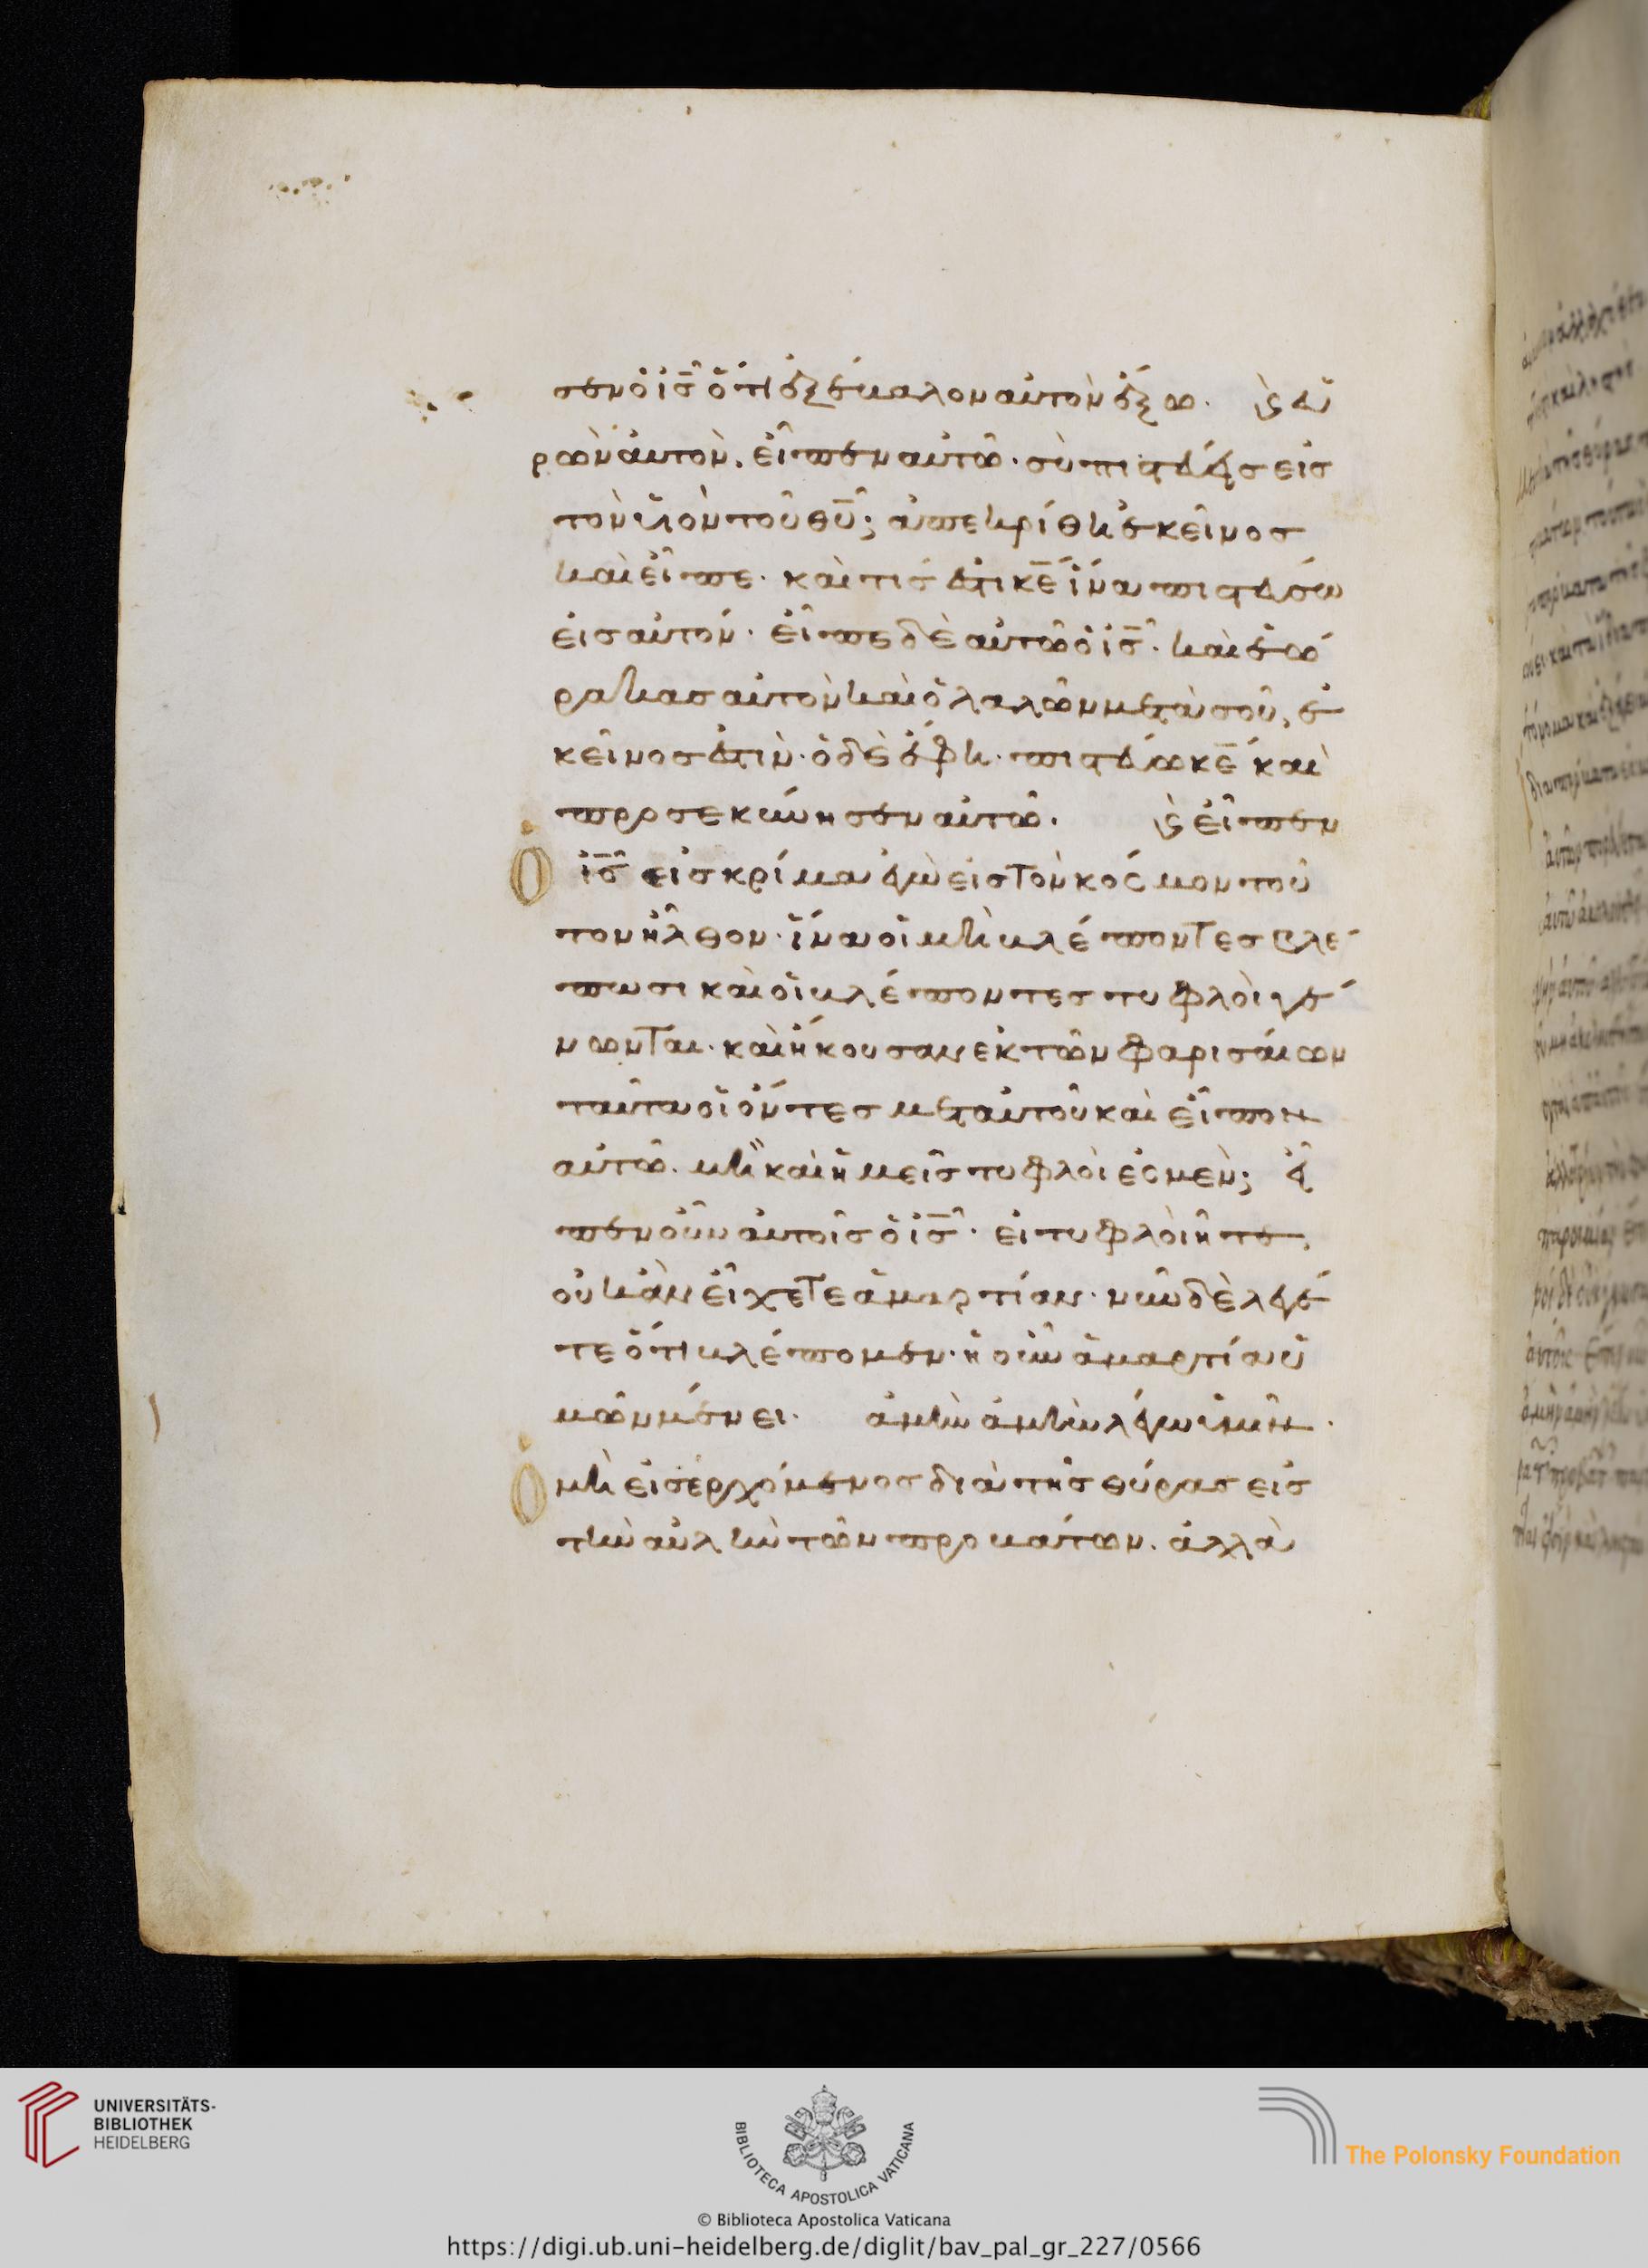 σεν ὁ ἰς̅ ὅτι ἐξέβαλον αὐτὸν ἔξω. ϛ εὑ
ρὼν αὐτὸν. εἶπεν αὐτῶ· σὺ πιστεύεις εἰς
τὸν υἱὸν τοῦ θυ̅; ἀπεκρίθη ἐκεῖνος
καὶ εἶπε· καὶ τίς ἐστι κε̅ ἵνα πιστεύσω
εἰς αὐτόν· εἶπε δὲ αὐτῶ ὁ ἰς̅· καὶ ἑώ
ρακας αὐτὸν καὶ ὁ λαλῶν μετὰ σοῦ, ἐ
κεῖνος ἐστὶν· ὁ δὲ ἔφη· πιστεύω κε̅ καὶ
προσεκύνησεν αὐτῶ. ϛ εἶπεν
Ὁ ἰς̅ εἰς κρίμα ἐγὼ εἰς τὸν κόσμον τοῦ
τον ἦλθον· ἵνα οἱ μὴ βλέποντες βλέ
πωσι καὶ οἱ βλέποντες τυφλοὶ γέ
νωνται· καὶ ἤκουσαν ἐκ τῶν φαρισαίων
ταῦτα οἱ ὄντες μετ αὐτοῦ καὶ εἶπον
αὐτῶ. μὴ καὶ ἡμεῖς τυφλοὶ ἐσμεν; εἶ
πεν οὖν αὐτοῖς ὁ ἰς̅· εἰ τυφλοὶ ἦτε,
οὐκ ἂν εἴχετε ἁμαρτίαν· νῦν δὲ λέγε
τε ὅτι βλέπομεν· ἡ οὖν ἁμαρτία ὑ
μῶν μένει· ἀμὴν ἀμὴν λέγω ὑμῖν·
Ὁ μὴ εἰσερχόμενος διὰ τῆς θύρας εἰς
τὴν αὐλὴν τῶν προβάτων. ἀλλὰ
UNIVERSITÄTS-
BIBLIOTHEK
HEIDELBERG
BIBLIOTECA APOSTOLICA VATICANA
The Polonsky Foundation
© Biblioteca Apostolica Vaticana
https://digi.ub.uni-heidelberg.de/diglit/bav_pal_gr_227/0566